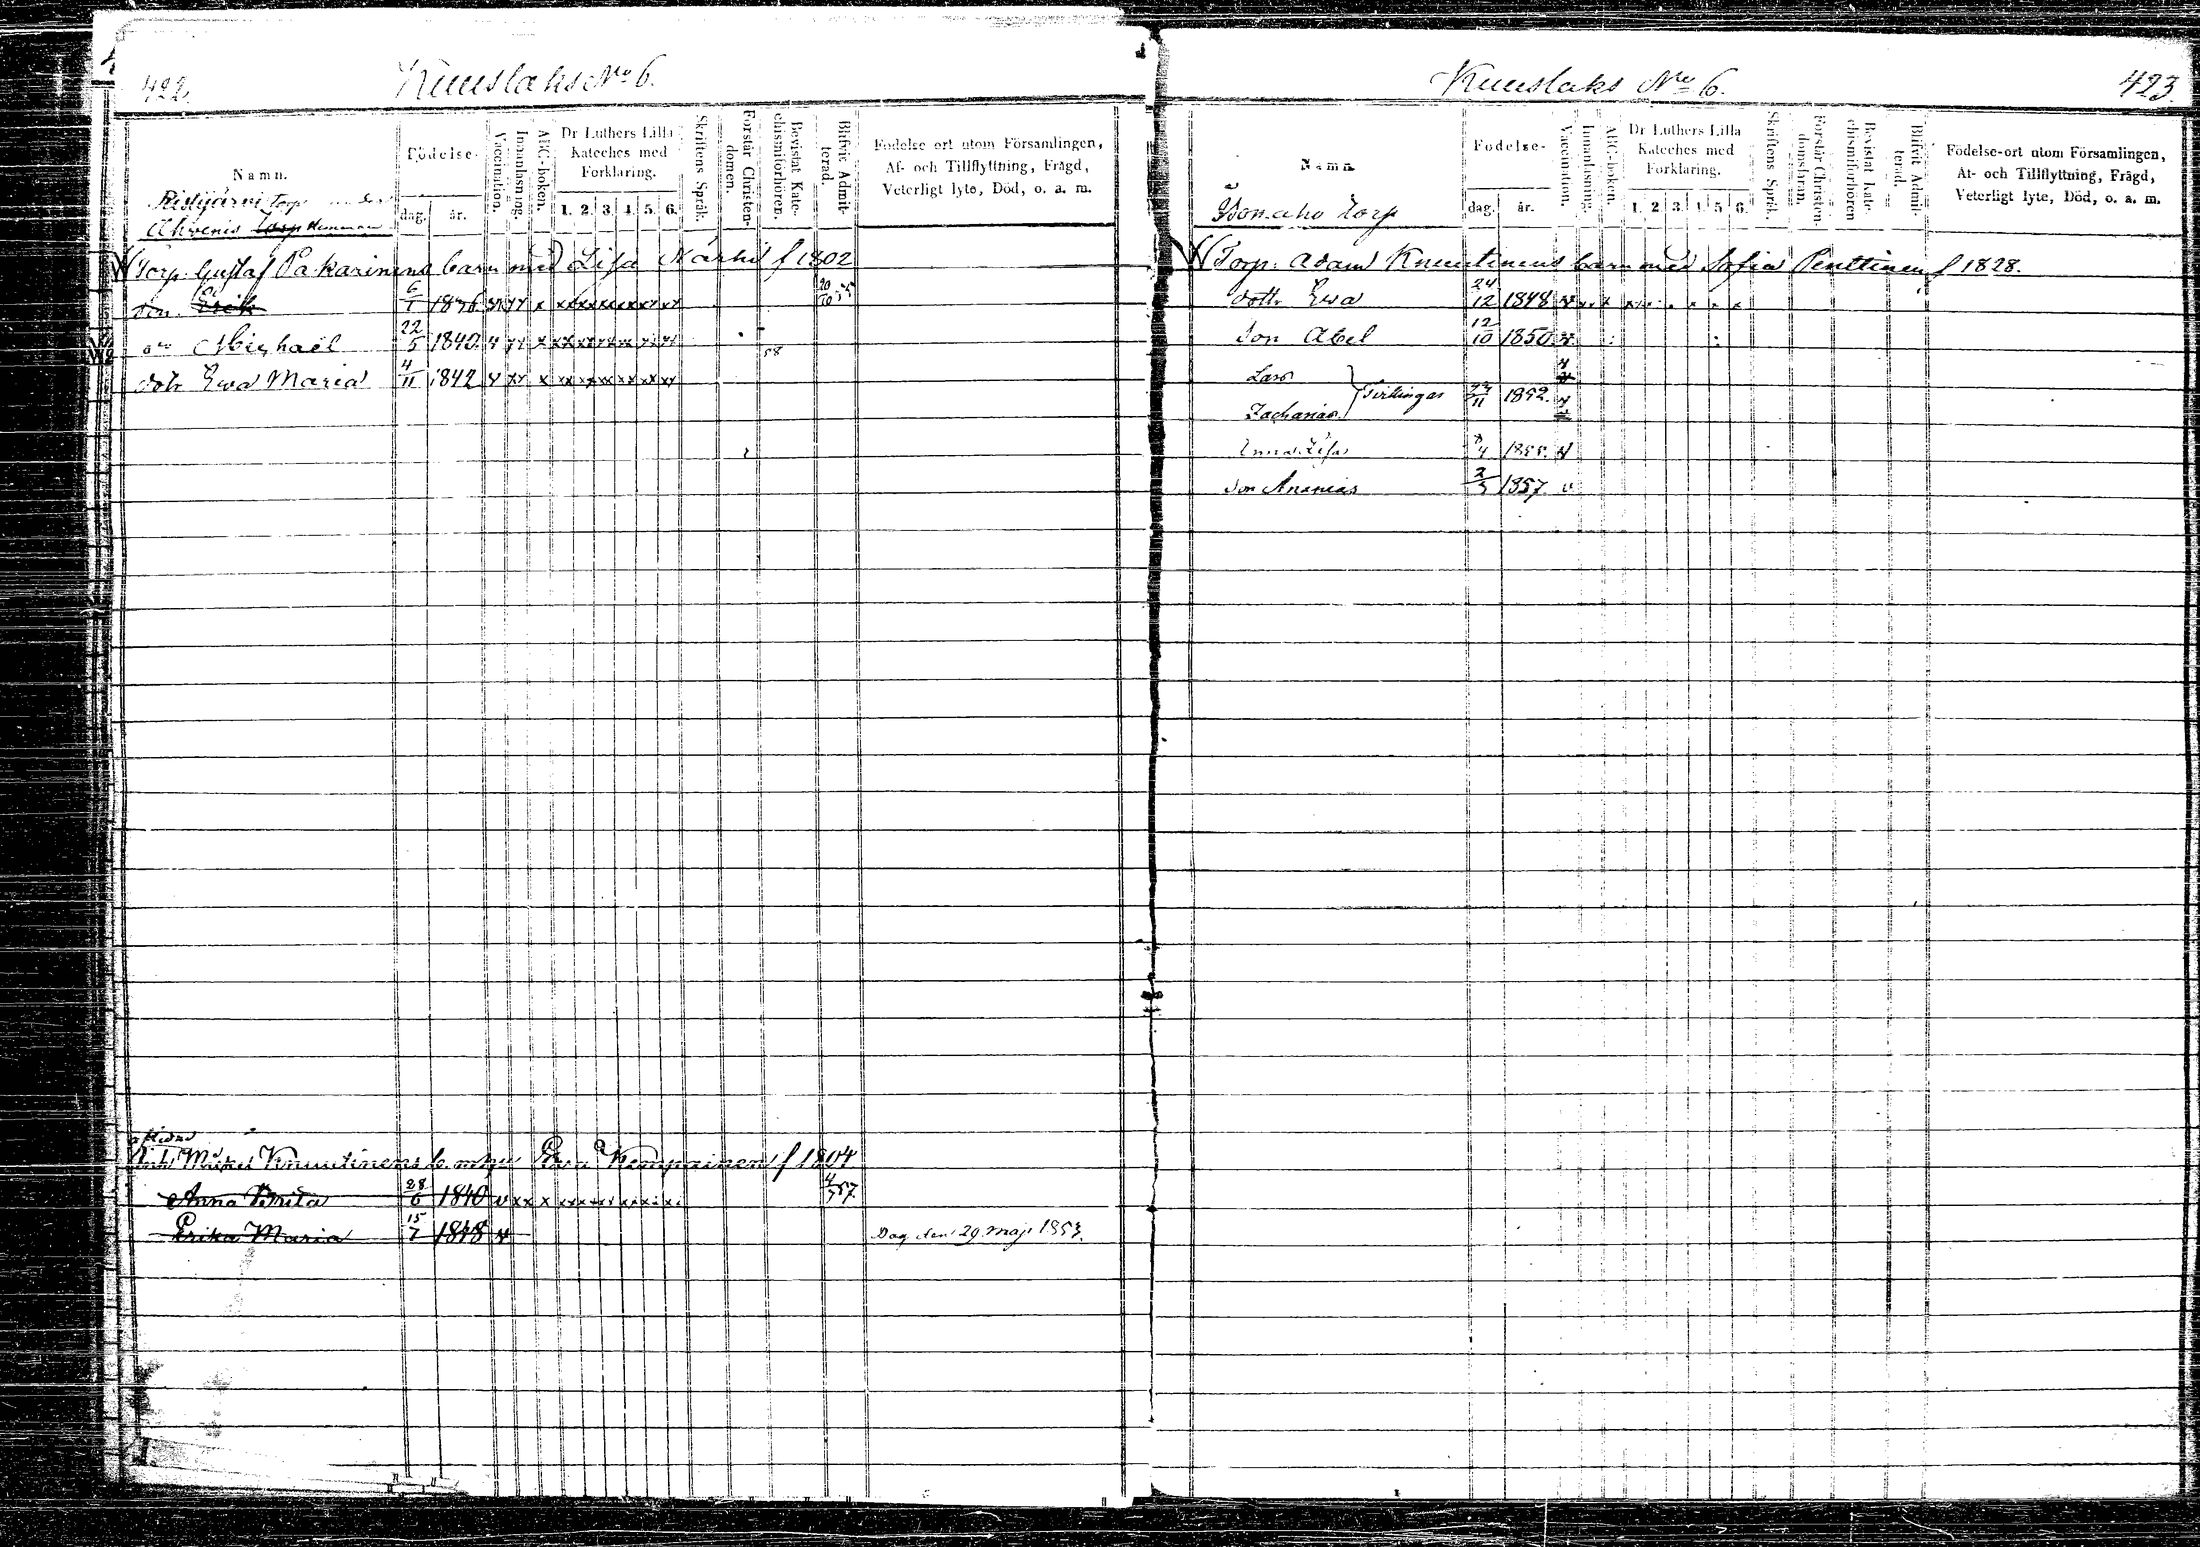 422.
Kuuslaks No 6.
Namn.
Födelse-
dag.
år.
Vaccination.
Innanläsning.
ABC-boken.
Dr Luthers Lilla
Kateches med
Förklaring.
1. 2. 3. 4. 5. 6.
Skriftens Språk.
Förstår Christen-
domen.
Bevistat Kate-
chismiförhören.
Blifvit Admit-
terad.
Födelse-ort utom Församlingen,
Af- och Tillflyttning, Frägd,
Veterligt lyte, Död, o. a. m.
Ristijärvi Torp
Ahvenis Torp Hemman
Torp. Gustaf Pakarinens barn med Lisa Kärki f 1802
Son Erik 6/1 1836
Michael 22/5 1840. 58
dotr Ewa Maria 4/11 1842
afledne
Michel Knuutinens b. m. h. Kemppainen f 1804
Anna Brita 28/6 1840 57
Erika Maria 15/7 1848 Dog den 29 Maji 1853.
Kuuslaks No 6.
423.
Namn
Födelse-
dag.
år.
Vaccination.
Innanläsning.
ABC-boken.
Dr Luthers Lilla
Kateches med
Förklaring.
1. 2. 3. 4. 5. 6.
Skriftens Språk.
Förstår Christen-
domsläran.
Bevistat Kate-
chismiförhören
Blifvit Admit-
terad.
Födelse-ort utom Församlingen,
Af- och Tillflyttning, Frägd,
Veterligt lyte, Död, o. a. m.
Torp
Torp. Adam Knuutinens barn med Sofia Penttinen f 1828.
dottr Ewa 24/12 1848
Son Abel 12/10 1850
Lars
Tvillingar 11 1852.
Zacharias
Anna Lisa 8/4 1855.
Son Ananias 2/5 1857.